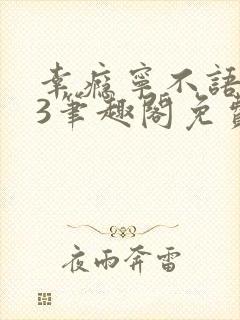 幸瘾寧不語
3筆趣閣免費
夜雨奔雷